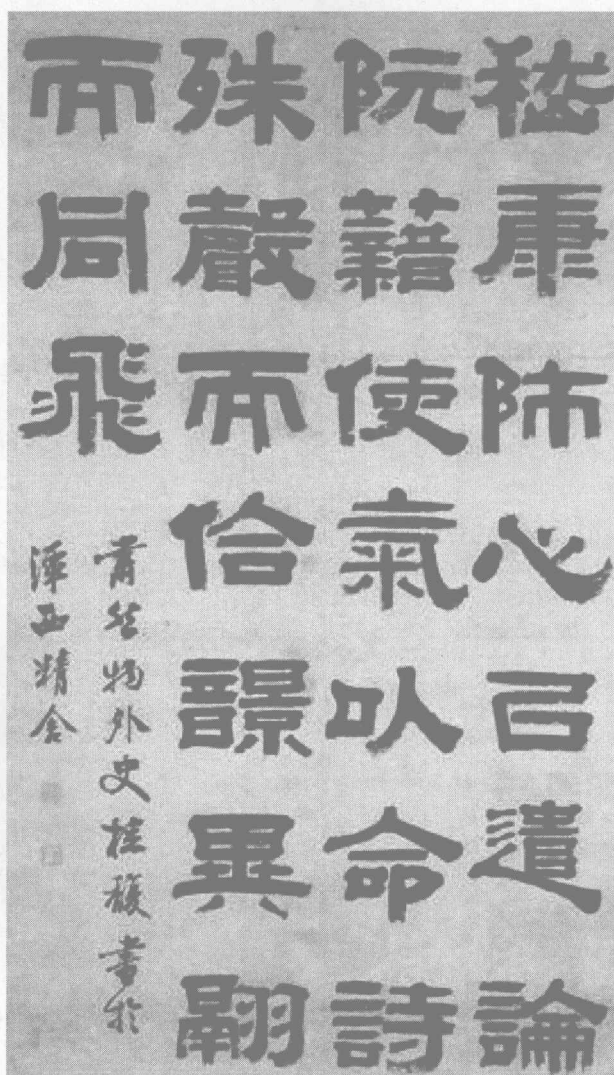 嵇康師心㠯遣論
阮藉使氣以命詩
殊聲而佮響異翮
而同飛
然物外史桂馥書於
潭西精舍